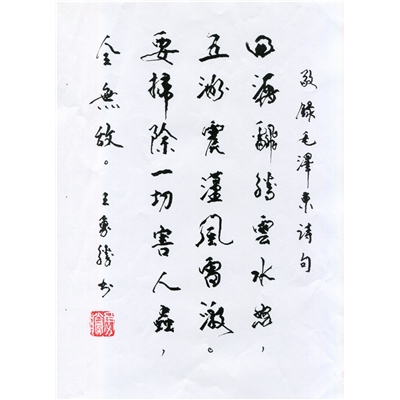 敬録毛澤東詩句
四海翻騰雲水怒，
五洲震蕩風雷激。
要掃除一切害人蟲，
全無敌。
王勇勝书